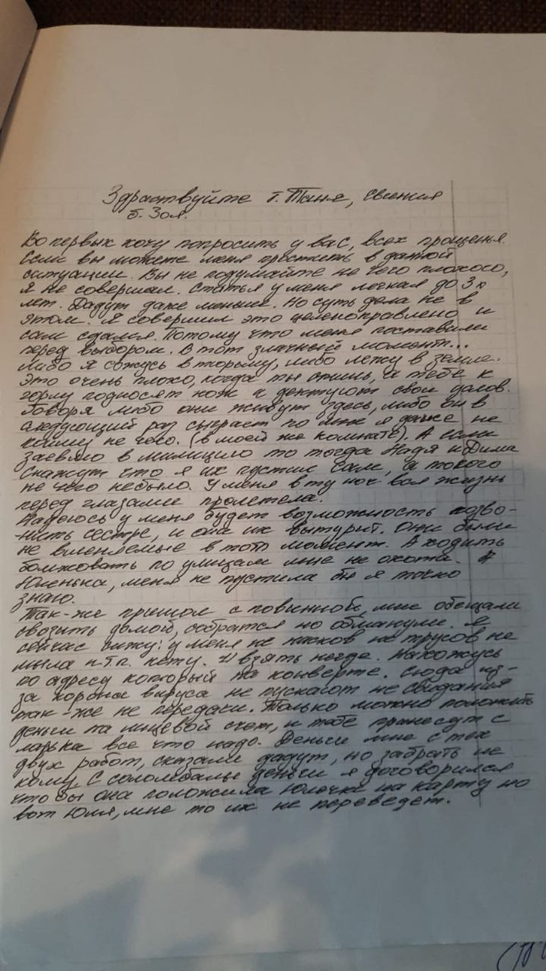 Здраствуйте т. Таня, Евгения
б. Зоя.
Во первых хочу попросить у вас, всех прощенья.
Если вы можете меня простить в данной
ситуации. Вы не подумайте не чего плохого,
я не совершал. Статья у меня легкая до 3х
лет. Дадут даже меньше. Но суть дела не в
этом. Я совершил это целенаправлено и
сам сдался. Потому что меня поставили
перед выбором. В тот злачный момент...
Либо я сажусь в тюрьму, либо лежу в земле.
Это очень плохо, когда ты спишь, а тебе к
горлу подносят нож и диктуют свои
Говоря либо они живут здесь, либо он в
следующий раз сыграет по мне я даже не
кикну не чего. (в моей же комнате). А если
заевлю в милицию то тогда Надя и Дима
скажут что я их пустил сам, а такого
не чего небыло. У меня в ту ноч вся жизнь
перед глазами пролетела.
Надеюсь у меня будет возможность позво-
нить сестре, и она их вытурит. Они были
не вменяемые в тот момент. А ходить
бомжовать по улицам мне не охота.
Юленька, меня не пустила бы я точно
знаю.
Так-же пришол с повинной, мне обещали
свозить домой, собратся но обманули. Я
сейчас сижу: у меня не насков не трусов не
мыла и т.п. нету. И взять негде. Нахожусь
по адресу который на конверте. Сюда из-
за корона вируса не пускают не свидания
так-же не передачи. Только можно положить
деньги на лицевой счет, и тебе принесут с
ларька все что надо. Деньги мне с тех
двух работ, сказали дадут, но забрать не
кому. С соломбалы деньги я договорился
что бы она положила Юлочке на карту но
вот Юля, мне то их не переведет.